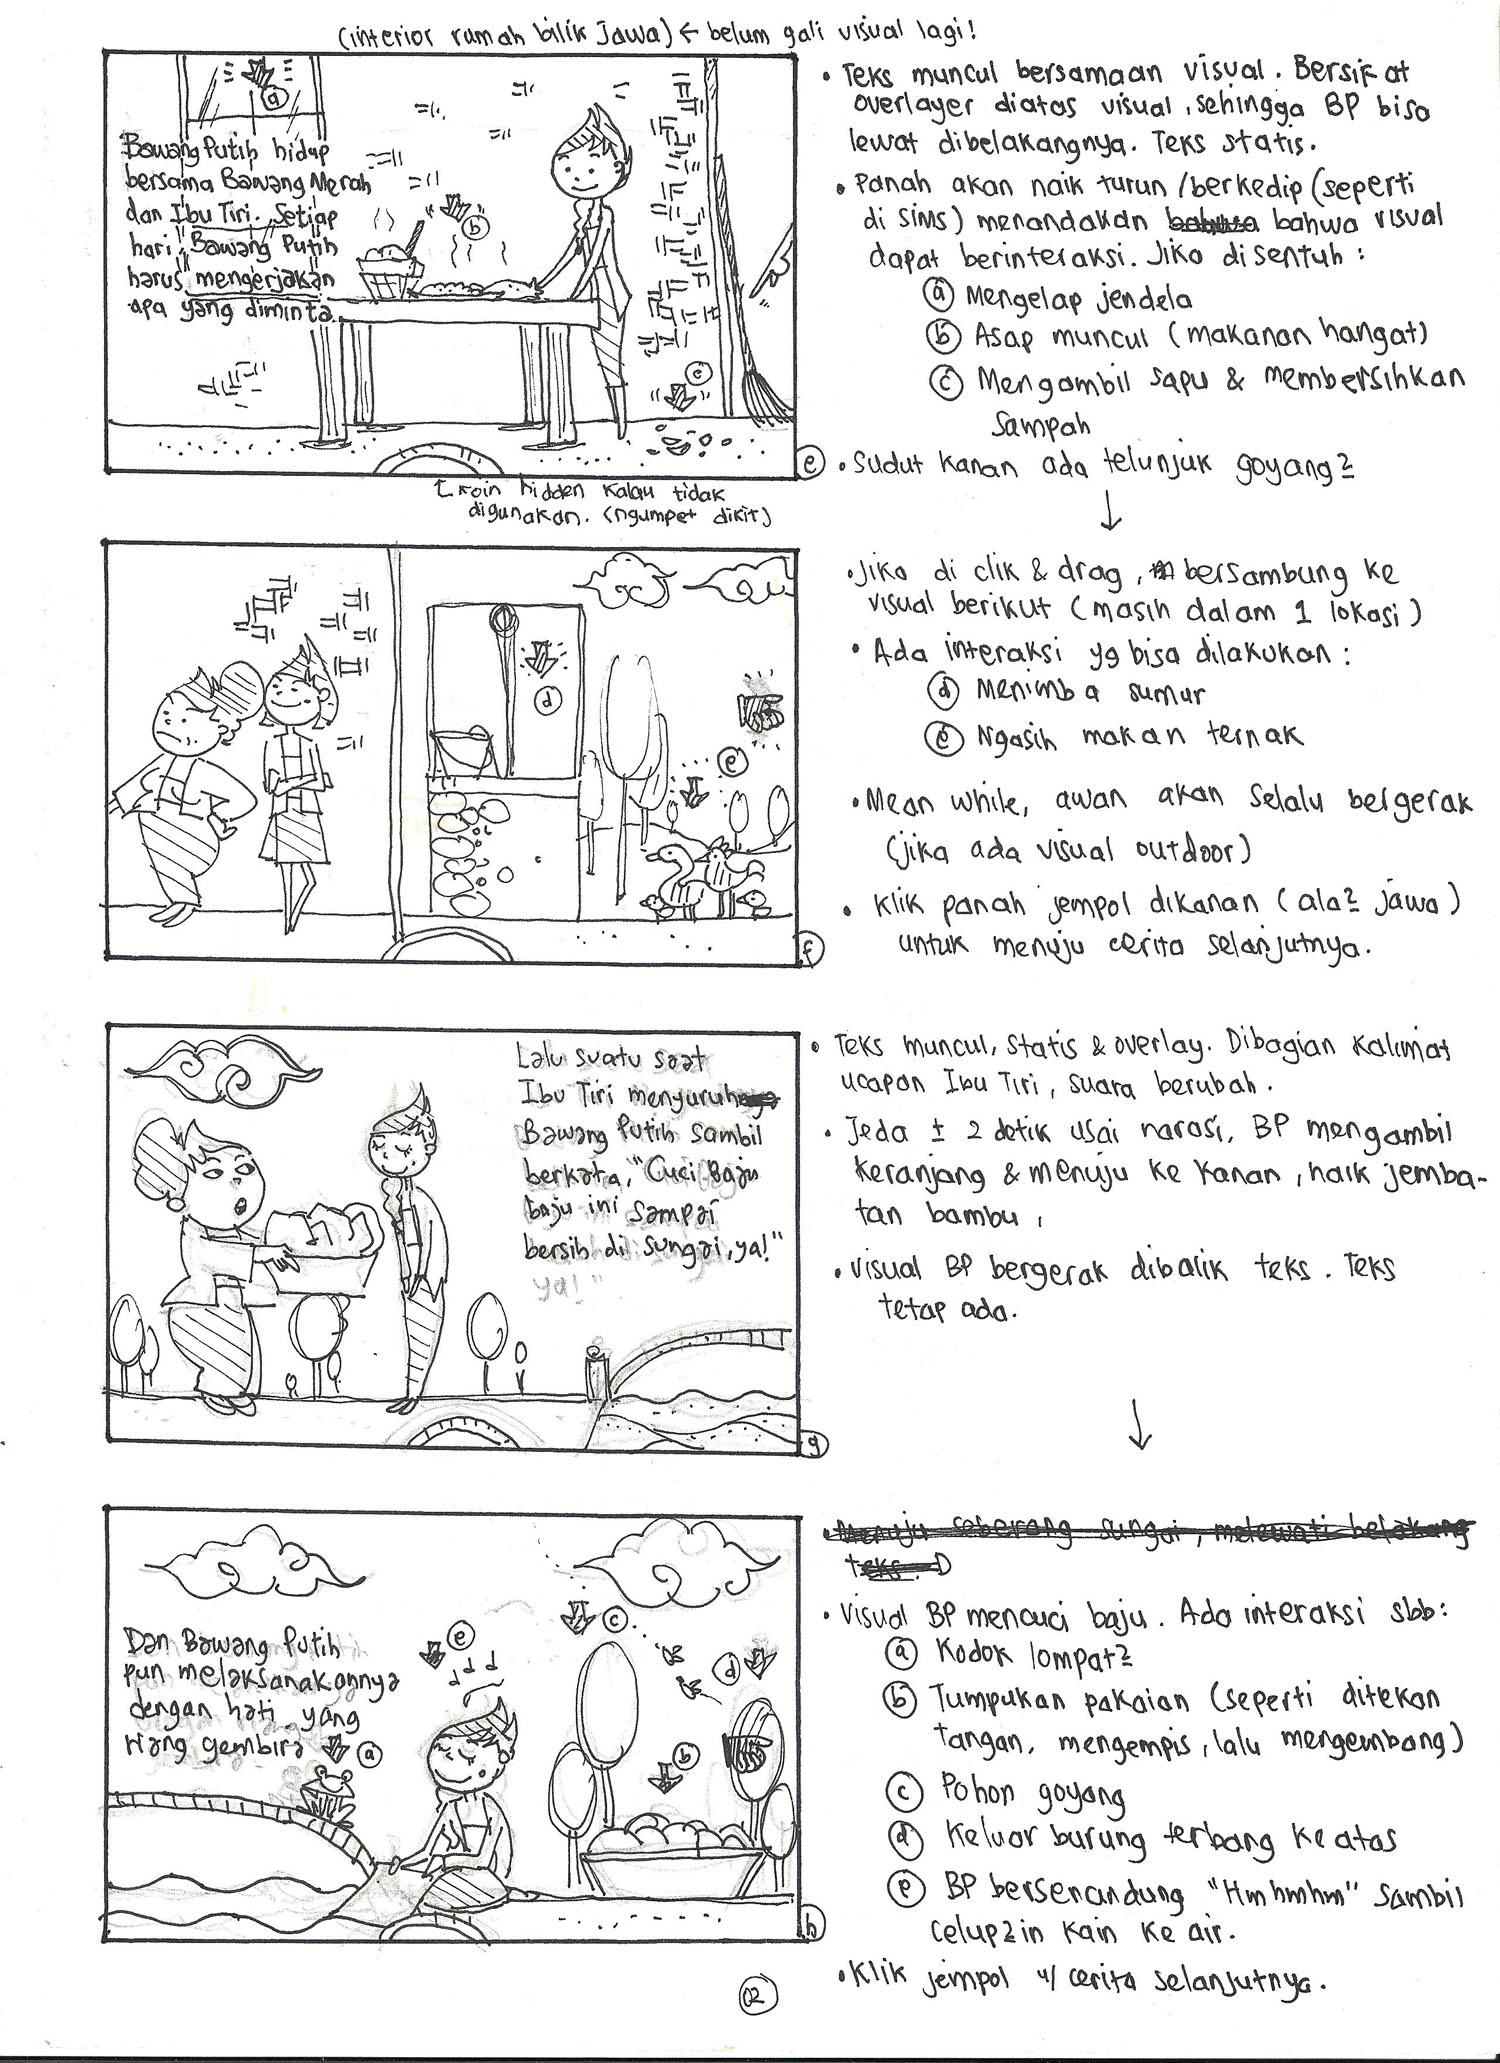 (interior rumah bilik Jawa) ← belum gali visual lagi!
a
Bawang Putih hidup
bersama Bawang Merah
dan Ibu Tiri. Setiap
hari, Bawang Putih
harus mengerjakan
apa yang diminta.
b
c
e
koin hidden kalau tidak
digunakan. (ngumpet dikit)
• Teks muncul bersamaan visual. Bersifat
overlayer diatas visual, sehingga BP bisa
lewat dibelakangnya. Teks statis.
• Panah akan naik turun/berkedip (seperti
di SIMS) menandakan bahwa visual
dapat berinteraksi. Jika disentuh:
a Mengelap jendela
b Asap muncul (makanan hangat)
c Mengambil sapu & membersihkan
sampah
• Sudut kanan ada telunjuk goyang2
d
e
f
• Jika di clik & drag, bersambung ke
visual berikut (masih dalam 1 lokasi)
• Ada interaksi yg bisa dilakukan:
d Menimba sumur
e Ngasih makan ternak
• Mean while, awan akan selalu bergerak
(jika ada visual outdoor)
• Klik panah jempol dikanan (ala2 jawa)
untuk menuju cerita selanjutnya.
Lalu suatu saat
Ibu Tiri menyuruh
Bawang Putih sambil
berkata, "Cuci Baju
baju ini sampai
bersih di sungai, ya!"
ya!"
g
• Teks muncul, statis & overlay. Dibagian kalimat
ucapan Ibu Tiri, suara berubah.
• Jeda ± 2 detik usai narasi, BP mengambil
keranjang & menuju ke kanan, naik jemba-
tan bambu,
• Visual BP bergerak dibalik teks. Teks
tetap ada.
Dan Bawang Putih
pun melaksanakannya
dengan hati yang
riang gembira
a
e
c
d
b
h
• Menuju seberang sungai, melewati belakang
teks. D
• Visual BP mencuci baju. Ada interaksi sbb:
a Kodok lompat2
b Tumpukan pakaian (seperti ditekan
tangan, mengempis, lalu mengembang)
c Pohon goyang
d Keluar burung terbang ke atas
e BP bersenandung "Hmhmhm" sambil
celup2in kain ke air.
• Klik jempol u/ cerita selanjutnya.
02